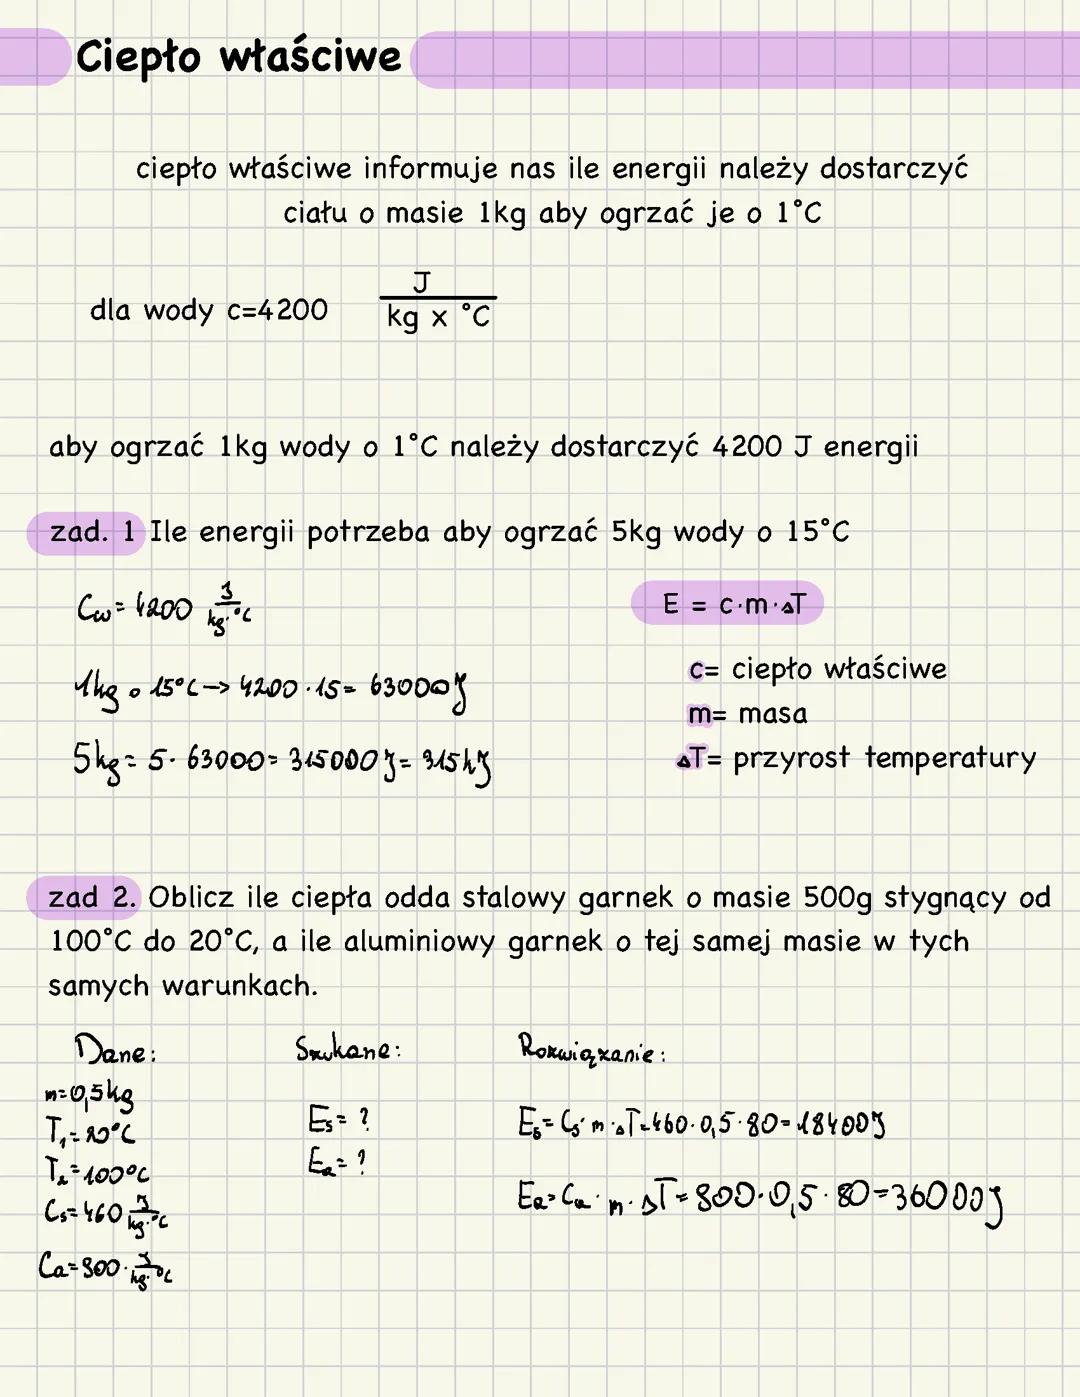 Ciepło właściwe
ciepło właściwe informuje nas ile energii należy dostarczyć
ciału o masie 1kg aby ogrzać je o 1°C
dla wody c=4200 J / kg x °C
aby ogrzać 1kg wody o 1°C należy dostarczyć 4200 J energii
zad. 1 Ile energii potrzeba aby ogrzać 5kg wody o 15°C
Cw = 4200 J / kg·°C
E = c·m·ΔT
1kg o 15°C -> 4200·15 = 63000J
c= ciepło właściwe
m= masa
5kg = 5·63000 = 315000J = 315kJ
ΔT= przyrost temperatury
zad 2. Oblicz ile ciepła odda stalowy garnek o masie 500g stygnący od
100°C do 20°C, a ile aluminiowy garnek o tej samej masie w tych
samych warunkach.
Dane:
m=0,5kg
T₁=20°C
T₂=100°C
Cs=460 J / kg·°C
Ca=800· J / kg·°C
Szukane:
Es= ?
Ea= ?
Rozwiązanie:
Es=Cs·m·ΔT=460·0,5·80=18400J
Ea=Ca·m·ΔT=800·0,5·80=36000J